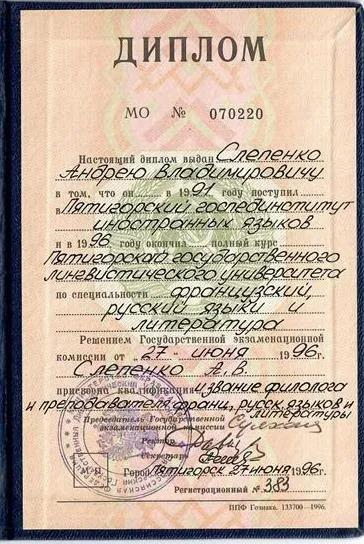 ДИПЛОМ
МО № 070220
Настоящий диплом выдан Слепенко
Андрею Владимировичу
в том, что он в 1991 году поступил
в Пятигорский госпединститут
иностранных языков
и в 1996 году окончил полный курс
Пятигорского государственного
лингвистического университета
по специальности французский,
русский языки и
литература
Решением Государственной экзаменационной
комиссии от 27 июня 1996 г.
Слепенко А.В.
присвоена квалификация и звание филолога
и преподавателя франц., русск. языков и
литературы
Председатель Государственной
экзаменационной комиссии
Ректор
Секретарь
М.П. Город Пятигорск 27 июня 1996 г.
Регистрационный № 383
ППФ Гознака. 133700—1996.